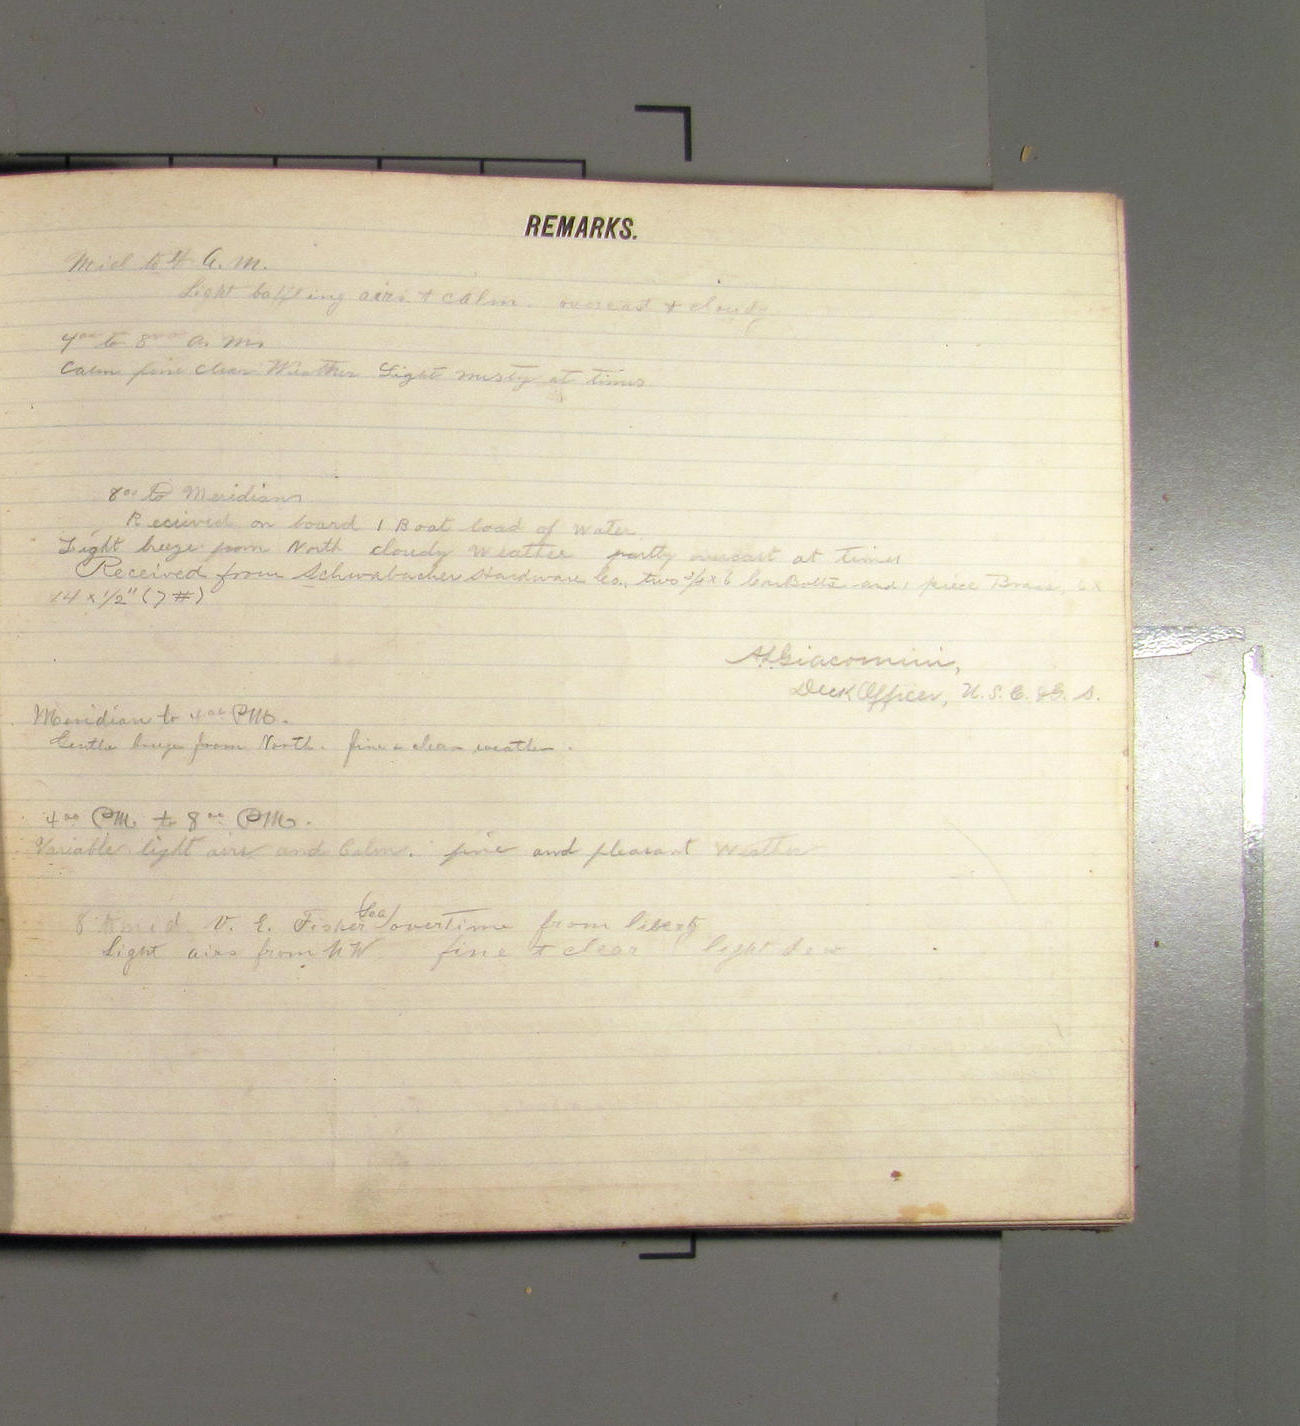 REMARKS.
Mid to 4 A. M.
Light baffling airs & calm. overcast & cloudy
4 00 to 8 00 A. M.
Calm fine clear Weather Light misty at times
8 00 to Meridian
Received on board 1 Boat load of Water
Light breeze from North cloudy Weather partly overcast at times
Received from Schwabacher Hardware Co., two 3/4 x 6 Car Bolts and 1 piece Brass, 6 x
14 x 1/2" (7 #)
A. Giacomini,
Deck Officer, U. S. C. & G. S.
Meridian to 4 00 PM.
Gentle breeze from North. fine & clear weather.
4 00 PM. to 8 00 PM.
Variable light airs and Calm. fine and pleasant Weather
8 to mid V. E. Fisher (Sea) overtime from liberty
Light airs from NW fine & clear light dew